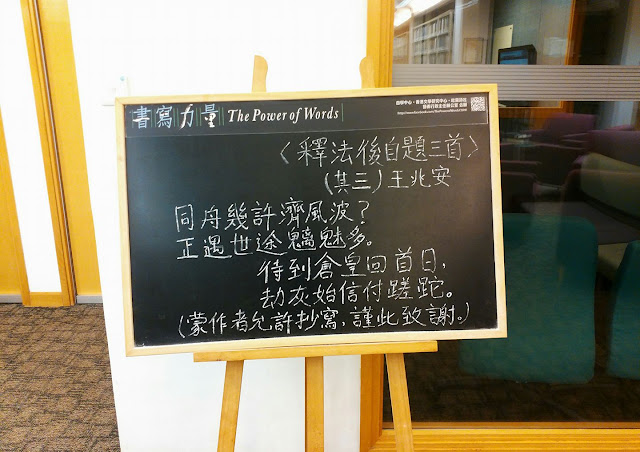 書寫力量 The Power of Words
〈釋法後自題三首〉
(其三) 王兆安
同舟幾許濟風波？
正遇世途魑魅多。
待到倉皇回首日，
劫灰始信付蹉跎。
(蒙作者允許抄寫，謹此致謝。)